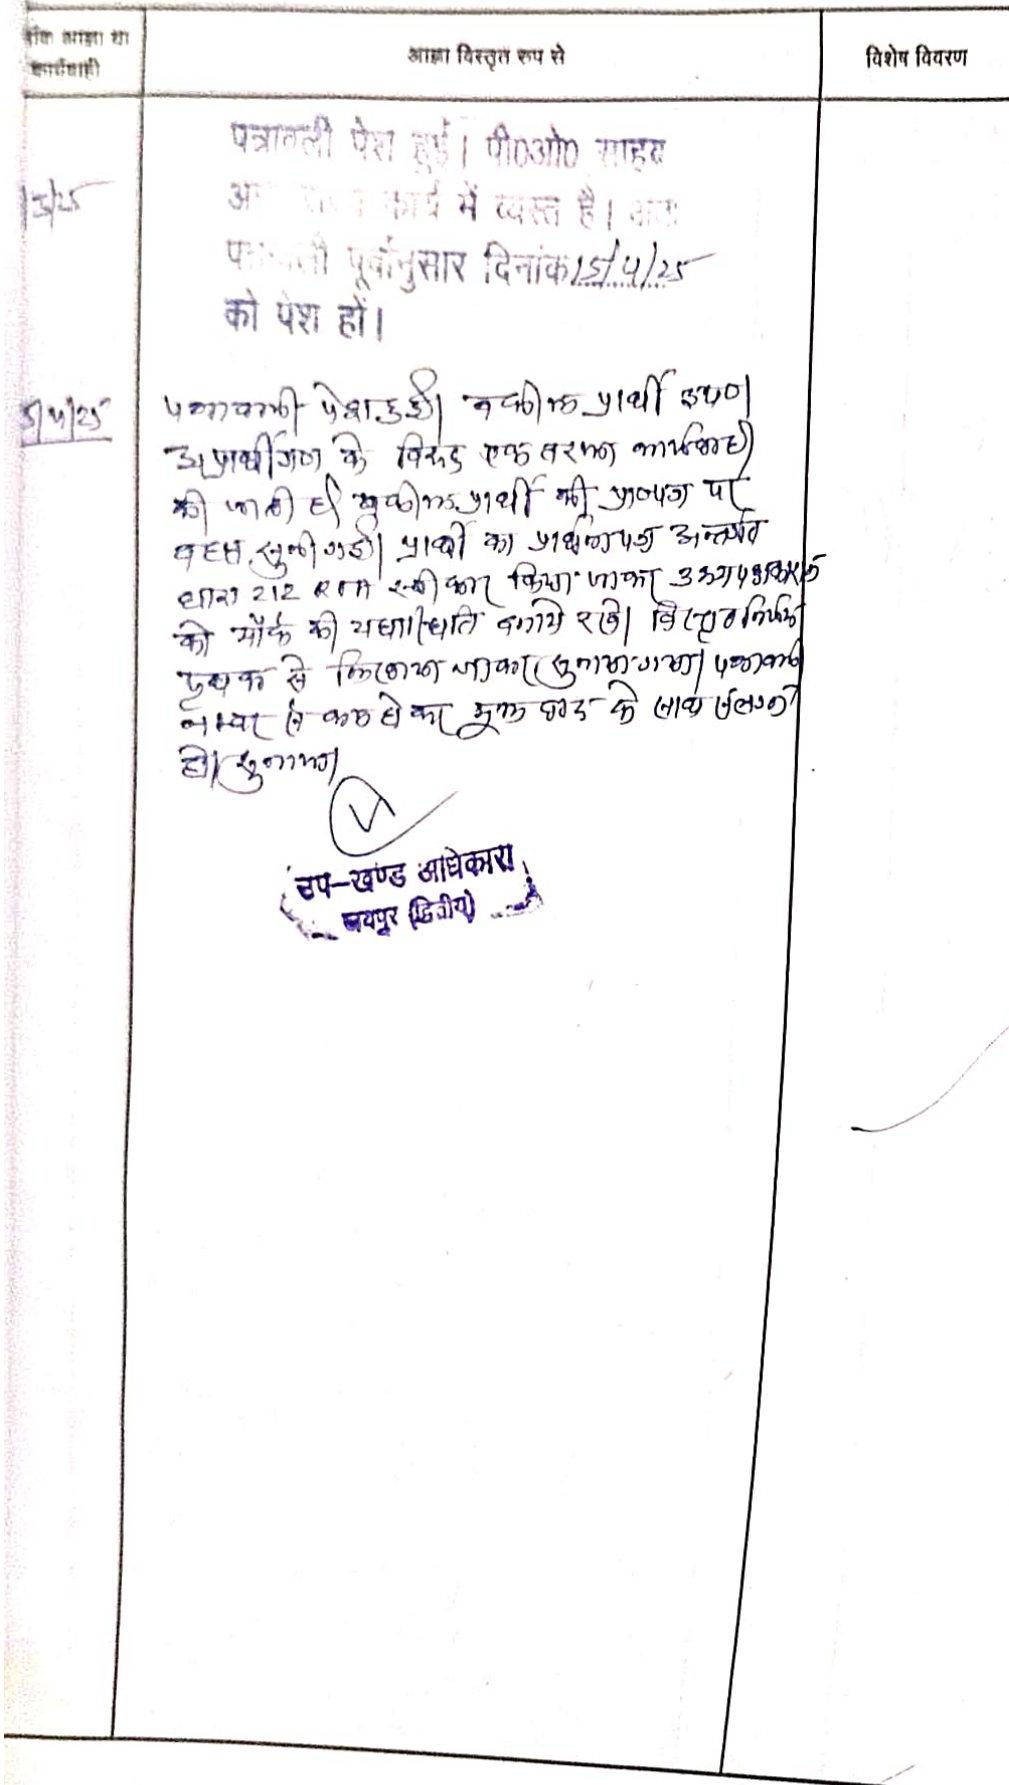 आज्ञा या
कार्यवाही
आज्ञा विस्तृत रूप से
विशेष विवरण
पत्रावली पेश हुई। पी0ओ0 साहब
कार्य में व्यस्त है। अतः
पूर्वानुसार दिनांक 15/4/25
को पेश हों।
5/4/25
पत्रावली पेश हुई। वकील प्रार्थी उप0।
अप्रार्थीगण के विरुद्ध एक तरफा कार्यवाही
की जाती है। वकील प्रार्थी की प्रा0पत्र पर
बहस सुनी गई। प्रार्थी का प्रार्थना पत्र अन्तर्गत
धारा 212 RTA स्वीकार किया जाकर उभयपक्षकारान
को मौके की यथास्थिति बनाये रखे। विस्तृत निर्णय
पृथक से लिखाया जाकर सुनाया गया। पत्रावली
नम्बर से कम होकर मूल वाद के साथ संलग्न
हो। सुनाया।
उप-खण्ड अधिकारी
जयपुर (द्वितीय)